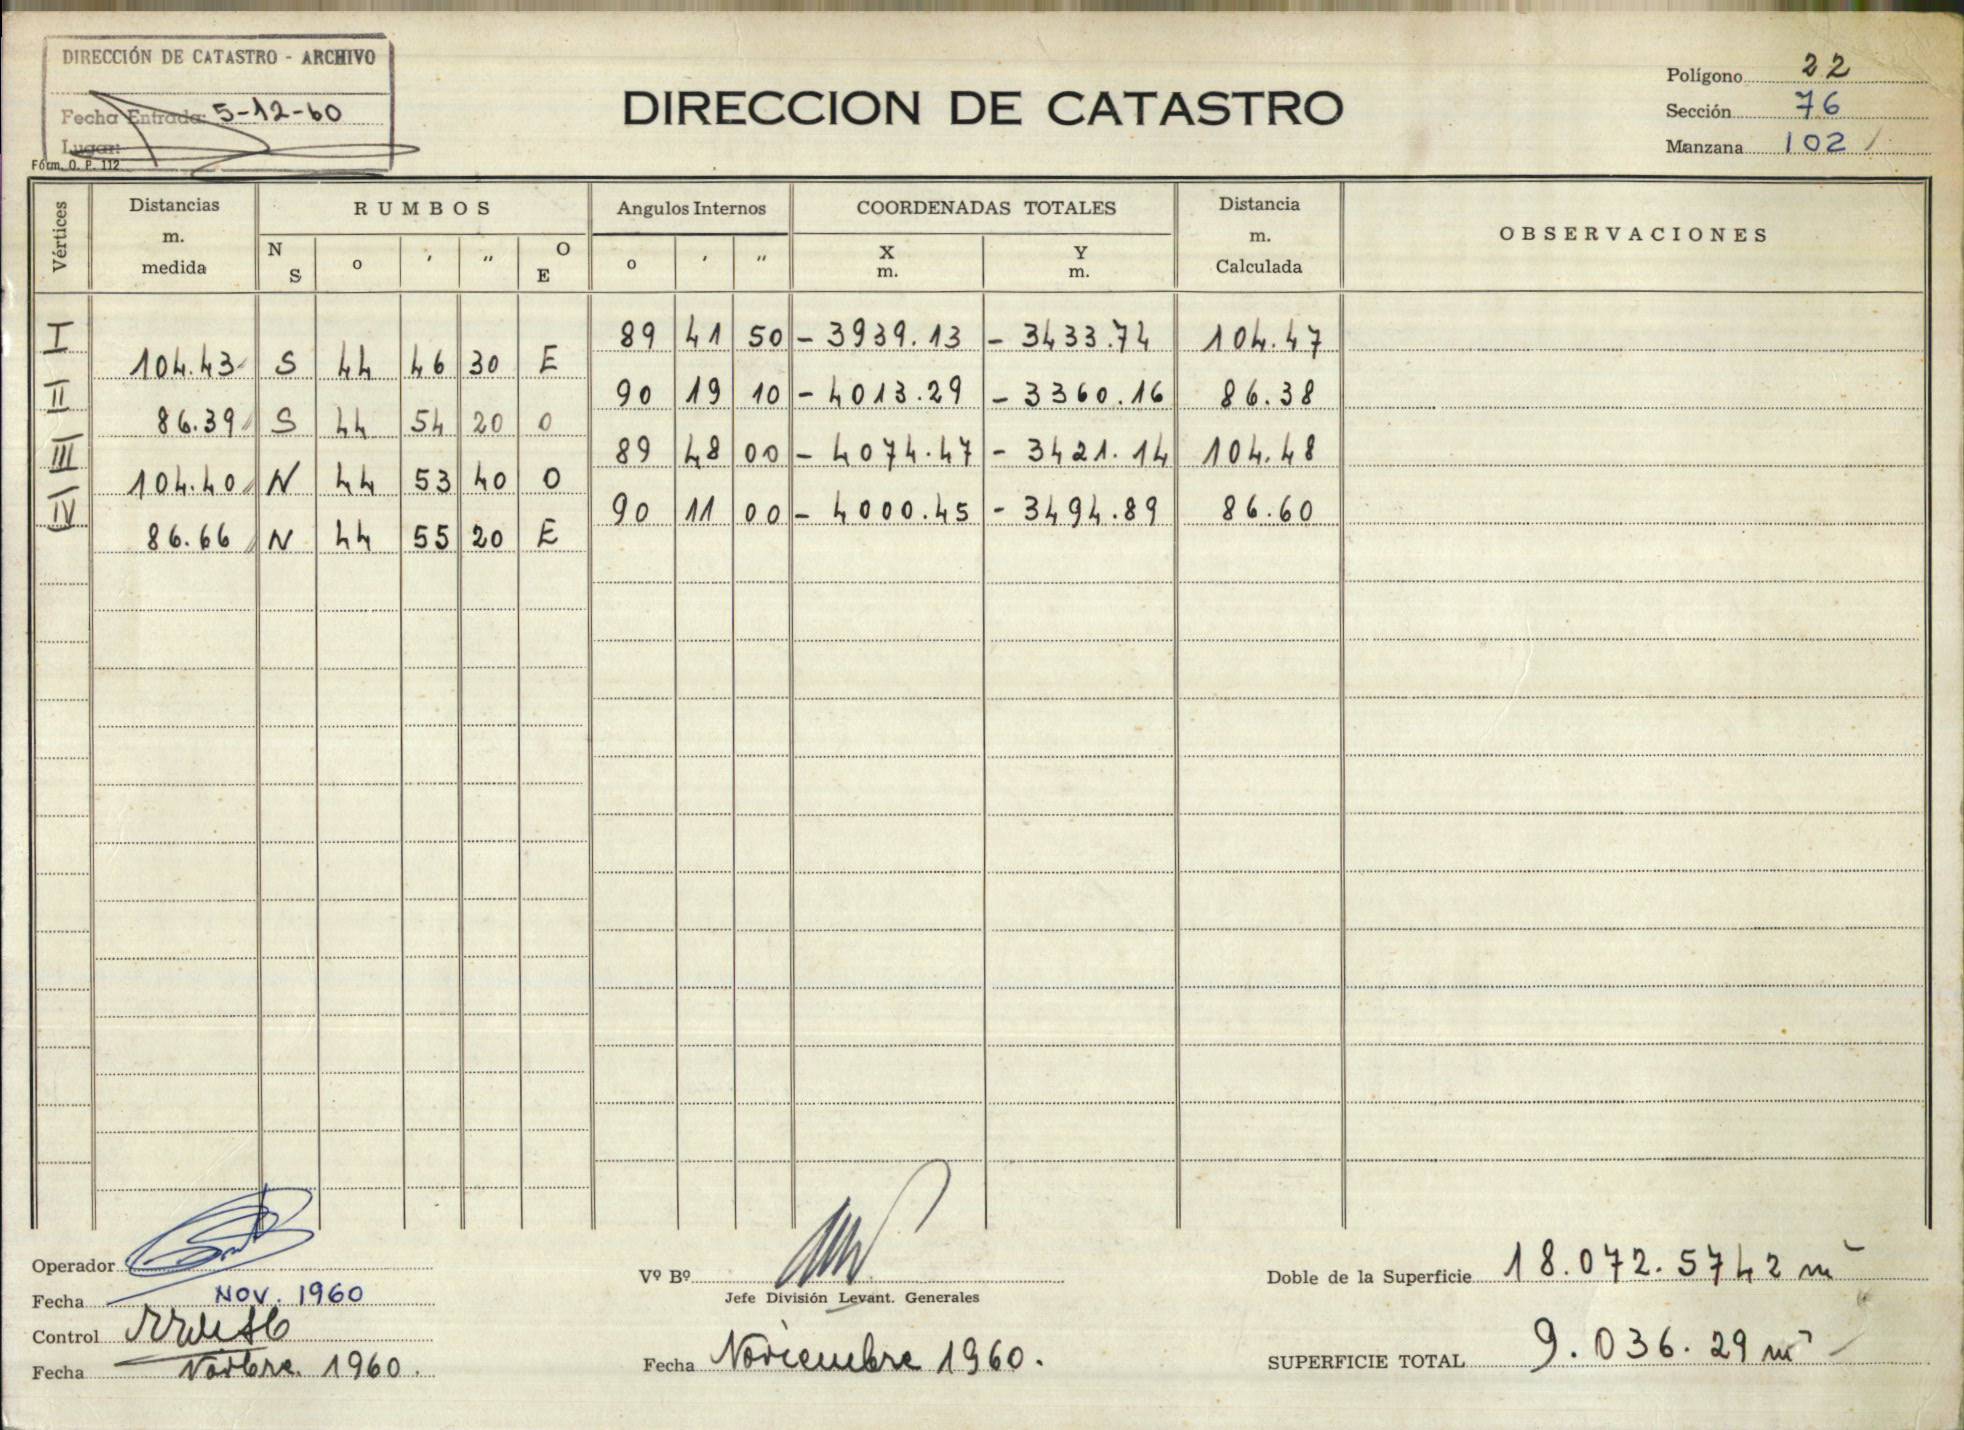 DIRECCIÓN DE CATASTRO - ARCHIVO
Fecha Entrada: 5-12-60
Lugar:
Fórm. O. P. 112
DIRECCION DE CATASTRO
Polígono 22
Sección 76
Manzana 102
Vértices
Distancias m. medida
RUMBOS
N S o ' " O E
Angulos Internos
o ' "
COORDENADAS TOTALES
X m. Y m.
Distancia m. Calculada
OBSERVACIONES
I 89 41 50 - 3939.13 - 3433.74 104.47
104.43 S 44 46 30 E
II 90 19 10 - 4013.29 - 3360.16 86.38
86.39 S 44 54 20 O
III 89 48 00 - 4074.47 - 3421.14 104.48
104.40 N 44 53 40 O
IV 90 11 00 - 4000.45 - 3494.89 86.60
86.66 N 44 55 20 E
Operador
Fecha NOV. 1960
Control
Fecha Novbre. 1960.
Vº Bº
Jefe División Levant. Generales
Fecha Noviembre 1960.
Doble de la Superficie 18.072.5742 m²
SUPERFICIE TOTAL 9.036.29 m²